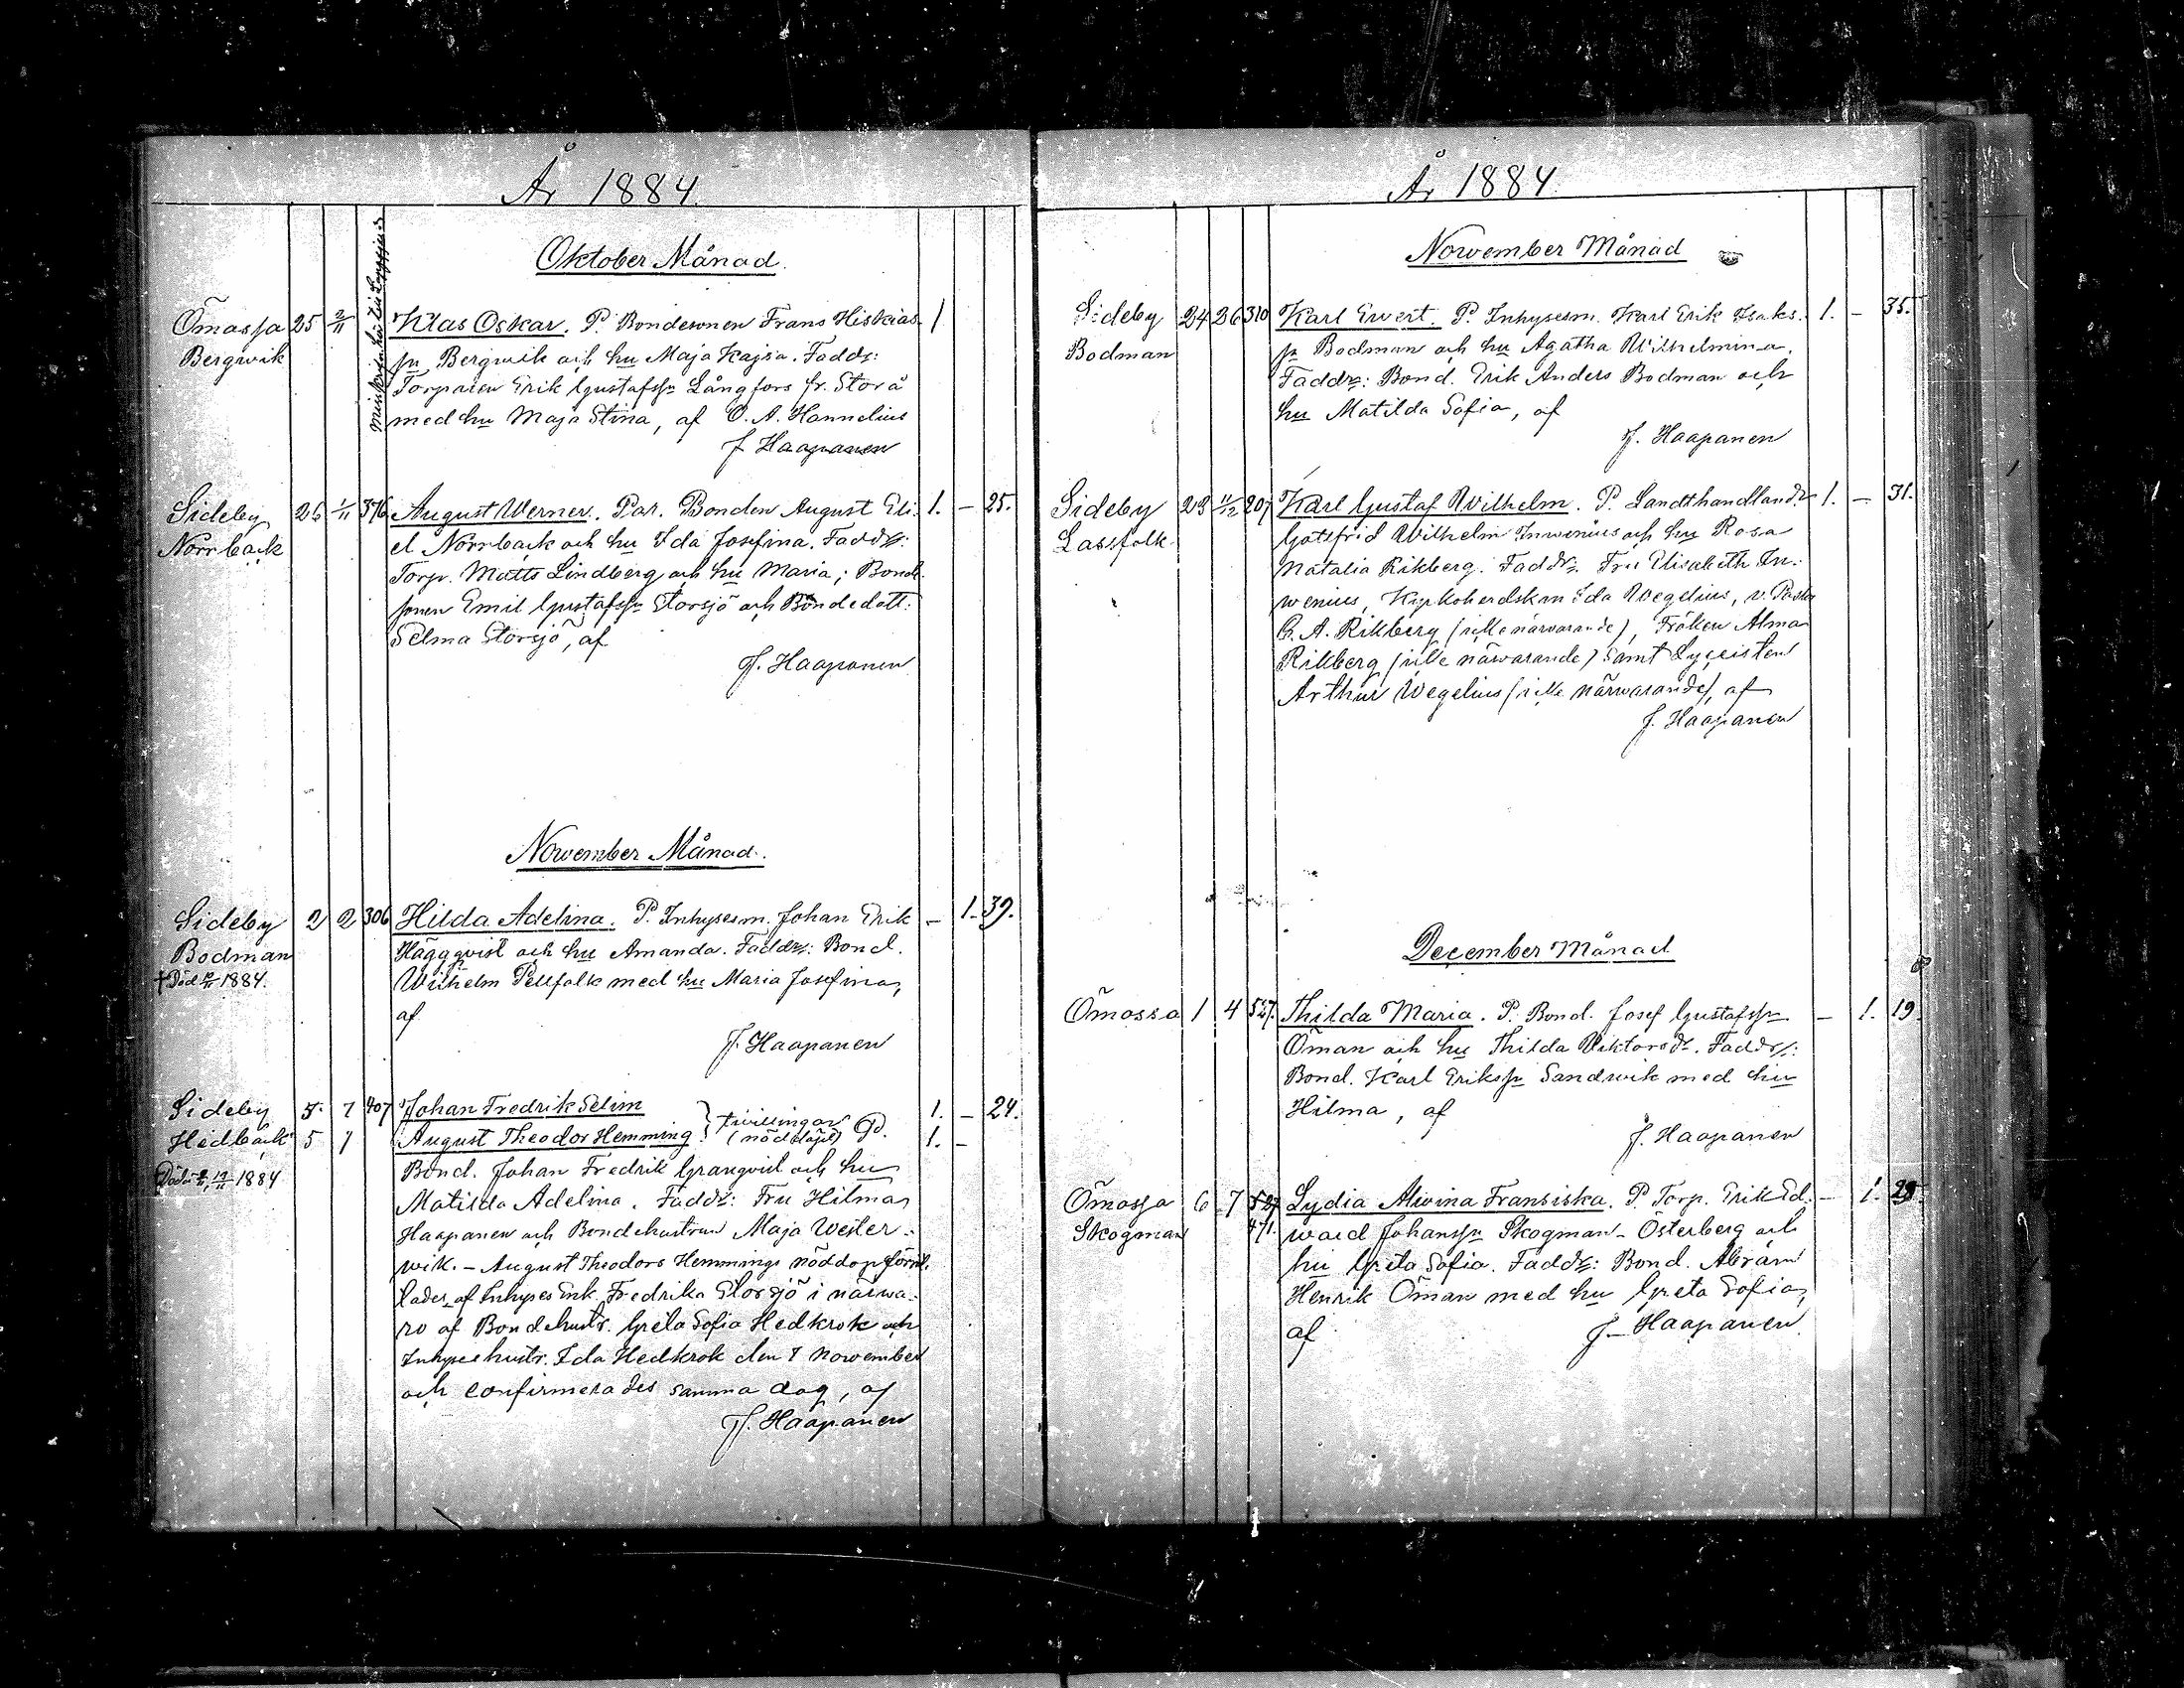 År 1884.
Oktober Månad.
Ömossa 25 2/11 Klas Oskar. P. Bondesonen Frans Hiskias- 1
Bergwik sn Bergwik och hu Maja Kajsa. Faddr:
Torparen Erik Gustafssn Långfors fr. Storå
med hu Maja Stina, af O. A. Hannelius
J Haapanen
Sideby 25 1/11 376 August Werner. Par. Bonden August Eli- 1. – 25.
Norrback el Norrback och hu Ida Josefina. Faddr:
Torp. Matts Lindberg och hu Maria; Bonde-
sonen Emil Gustafssn Storsjö och Bondedott:
Selma Storsjö, af
J. Haapanen
November Månad.
Sideby 2 2 306 Hilda Adelina. P. Inhysesm. Johan Erik – 1. 39.
Bodman Häggqvist och hu Amanda. Faddr: Bond.
† Död 1884. Wilhelm Pellfolk med hu Maria Josefina,
af
J. Haapanen
Sideby 5. 7 407 Johan Fredrik Selim 1. – 24.
Hedback 5 7 August Theodor Hemming } tvillingar (nöddöpt) P. 1. –
Död 1884 Bond. Johan Fredrik Granqvist och hu
Matilda Adelina. Faddr: Fru Hilma
Haapanen och Bondehustrun Maja Wester-
wik. – August Theodors Hemmings nöddop förrät-
tades af Inhyses Enk. Fredrika Storsjö i närwa-
ro af Bondehustr. Greta Sofia Hedkrok och
Inhyseshustr. Ida Hedkrok den 7 November
och confirmerades samma dag, af
J. Haapanen
År 1884.
November Månad
Sideby 24 26 310 Karl Evert. P. Inhysesm. Karl Erik Isaks- 1. – 35.
Bodman sn Bodman och hu Agatha Wilhelmina.
Faddr: Bond. Erik Anders Bodman och
hu Matilda Sofia, af
J. Haapanen
Sideby 23 11/12 207 Karl Gustaf Wilhelm. P. Landthandland. 1. – 31.
Lassfolk Gotsfrid Wilhelm Inwenius och hu Rosa
Natalia Rikberg. Faddr. Fru Elisabeth In-
wenius, Kyrkoherdskan Ida Wegelius, v. Pastor
G. A. Rikberg (icke närwarande), Fröken Alma
Rikberg (icke närwarande) samt Lyceisten
Arthur Wegelius (icke närwarande), af
J. Haapanen
December Månad.
Ömossa 1 4 527. Thilda Maria. P. Bond. Josef Gustafssn – 1. 19
Öman och hu Thilda Wiktorsdr. Faddr:
Bond. Karl Erikssn Sandwik med hu
Hilma, af
J. Haapanen
Ömossa 6 7 Lydia Alwina Fransiska. P. Torp. Erik Ed- – 1.
Skogman 471. ward Johanssn Skogman-Österberg och
hu Greta Sofia. Faddr: Bond. Abram
Henrik Öman med hu Greta Sofia,
af J. Haapanen